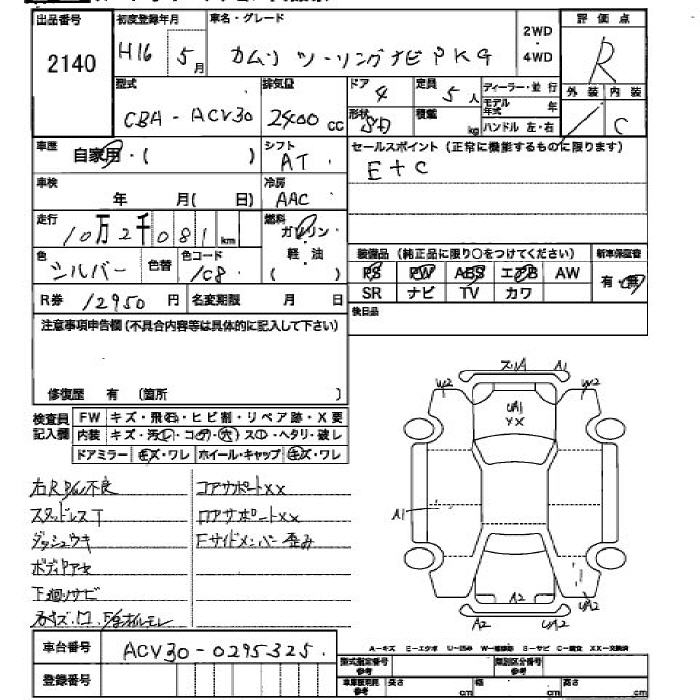 出品番号 初度登録年月 車名・グレード 2WD・4WD 評価点
2140 H16 5月 カムリ ツーリングナビPKG R
型式 排気量 ドア 定員 ディーラー・並行 外装 内装
CBA-ACV30 2400cc 4 5人 モデル年式 年 C
形状 SD 積載 kg ハンドル 左・右
車歴 自家用・( ) シフト AT セールスポイント (正常に機能するものに限ります)
E+C
車検 年 月( 日) 冷房 AAC
走行 10万2千081km 燃料 ガソリン・軽・油 ( )
色 シルバー 色替 色コード 1C8
装備品 (純正品に限り○をつけてください) 新車保証書
PS PW ABS エアB AW 有・無
SR ナビ TV カワ
R券 12950円 名変期限 月 日
後日品
注意事項申告欄 (不具合内容等は具体的に記入して下さい)
修復歴 有 (箇所 )
検査員記入欄 FW キズ・飛石・ヒビ割・リペア跡・X要
内装 キズ・汚レ・コゲ・穴・スレ・ヘタリ・破レ
ドアミラー キズ・ワレ ホイール・キャップ キズ・ワレ
右RP/W不良
コアサポートXX
スタッドレスT
ロアサポートXX
ダッシュウキ
Fサイドメンバー歪み
ボディアキ
下廻りサビ
A1
W2
W2
UA1
XX
A1
A2
A2
UA2
車台番号 ACV30-0295325
登録番号
A-キズ E-エクボ U-凹み W-補修跡 S-サビ C-腐食 XX-交換済
型式指定番号 参考 類別区分番号 参考
車庫証明用 参考 長さ cm 幅 cm 高さ cm